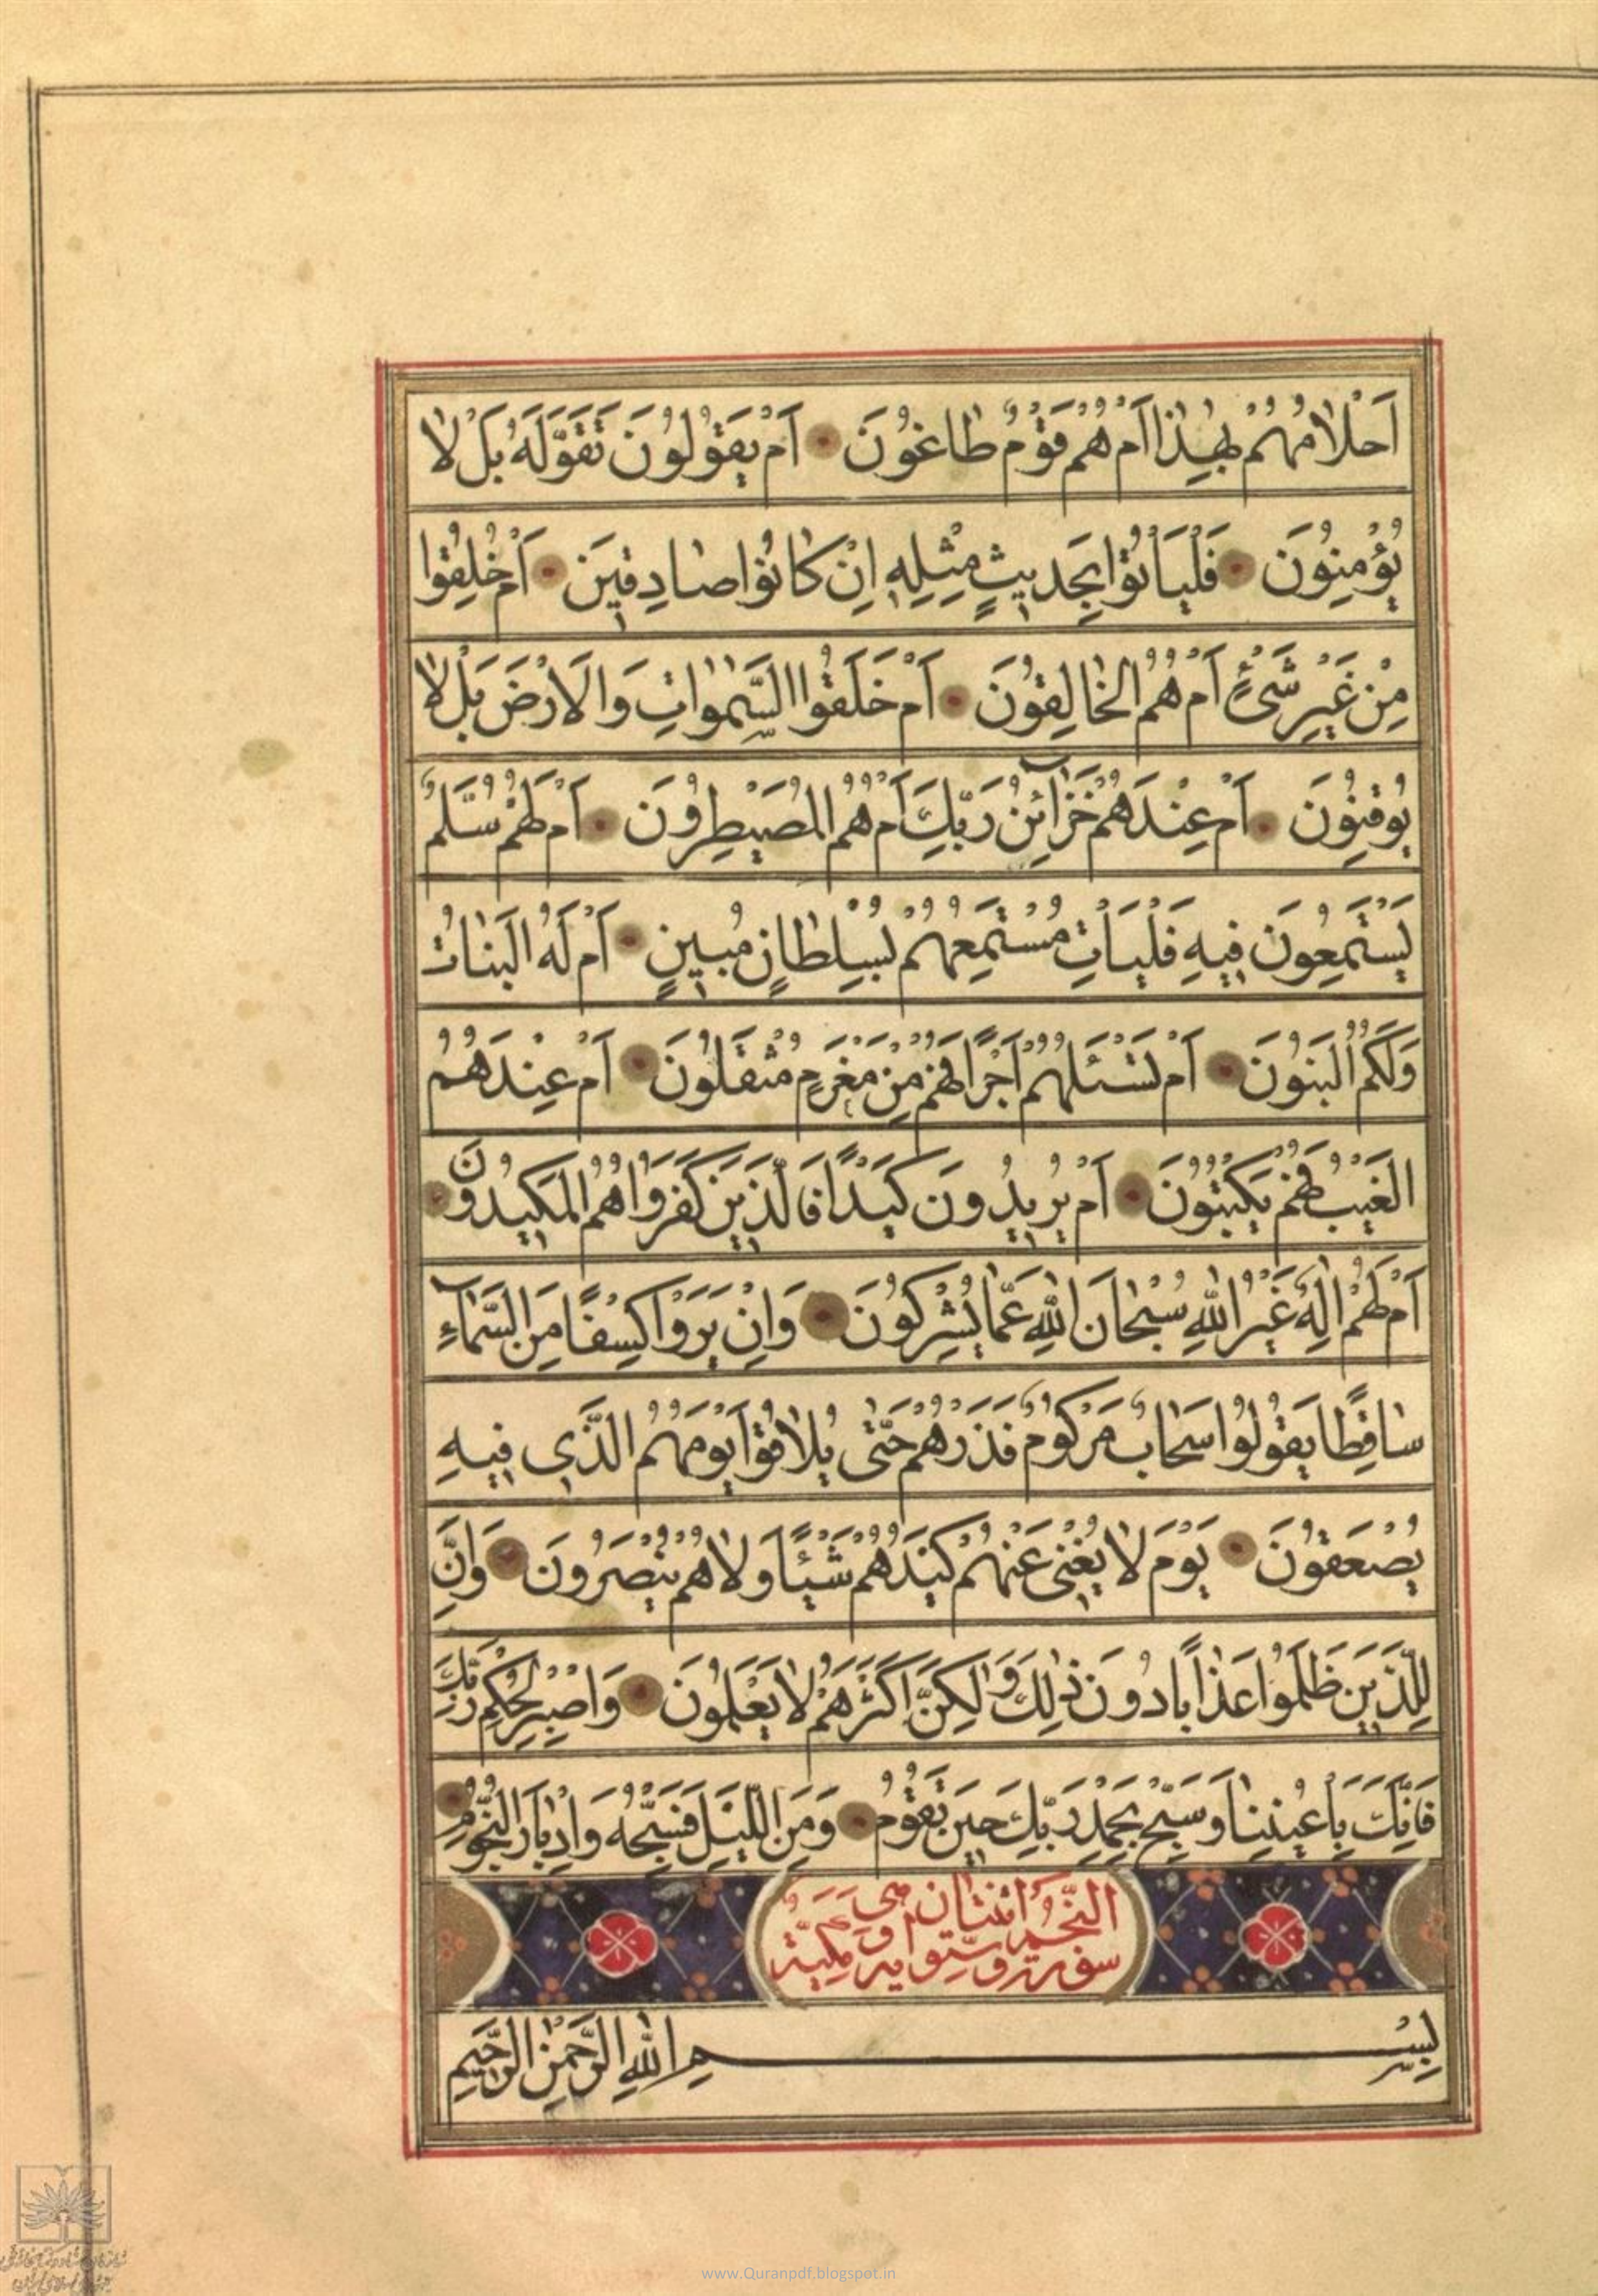 اَحْلَامُهُمْ بِهٰذَا اَمْ هُمْ قَوْمٌ طَاغُونَ اَمْ يَقُولُونَ تَقَوَّلَهُ بَلْ لَا
يُؤْمِنُونَ فَلْيَأْتُوا بِحَدِيثٍ مِثْلِهِ اِنْ كَانُوا صَادِقِينَ اَمْ خُلِقُوا
مِنْ غَيْرِ شَىْءٍ اَمْ هُمُ الْخَالِقُونَ اَمْ خَلَقُوا السَّمٰوَاتِ وَالْاَرْضَ بَلْ لَا
يُوقِنُونَ اَمْ عِنْدَهُمْ خَزَآئِنُ رَبِّكَ اَمْ هُمُ الْمُصَيْطِرُونَ اَمْ لَهُمْ سُلَّمٌ
يَسْتَمِعُونَ فِيهِ فَلْيَأْتِ مُسْتَمِعُهُمْ بِسُلْطَانٍ مُبِينٍ اَمْ لَهُ الْبَنَاتُ
وَلَكُمُ الْبَنُونَ اَمْ تَسْئَلُهُمْ اَجْرًا فَهُمْ مِنْ مَغْرَمٍ مُثْقَلُونَ اَمْ عِنْدَهُمُ
الْغَيْبُ فَهُمْ يَكْتُبُونَ اَمْ يُرِيدُونَ كَيْدًا فَالَّذِينَ كَفَرُوا هُمُ الْمَكِيدُونَ
اَمْ لَهُمْ اِلٰهٌ غَيْرُ اللّٰهِ سُبْحَانَ اللّٰهِ عَمَّا يُشْرِكُونَ وَاِنْ يَرَوْا كِسْفًا مِنَ السَّمَآءِ
سَاقِطًا يَقُولُوا سَحَابٌ مَرْكُومٌ فَذَرْهُمْ حَتّٰى يُلَاقُوا يَوْمَهُمُ الَّذِى فِيهِ
يُصْعَقُونَ يَوْمَ لَا يُغْنِى عَنْهُمْ كَيْدُهُمْ شَيْئًا وَلَا هُمْ يُنْصَرُونَ وَاِنَّ
لِلَّذِينَ ظَلَمُوا عَذَابًا دُونَ ذٰلِكَ وَلٰكِنَّ اَكْثَرَهُمْ لَا يَعْلَمُونَ وَاصْبِرْ لِحُكْمِ رَبِّكَ
فَاِنَّكَ بِاَعْيُنِنَا وَسَبِّحْ بِحَمْدِ رَبِّكَ حِينَ تَقُومُ وَمِنَ الَّيْلِ فَسَبِّحْهُ وَاِدْبَارَ النُّجُومِ
سورة النَّجم اثنتان وستون اية وهى مكيّة
بِسْمِ اللّٰهِ الرَّحْمٰنِ الرَّحِيمِ
www.Quranpdf.blogspot.in